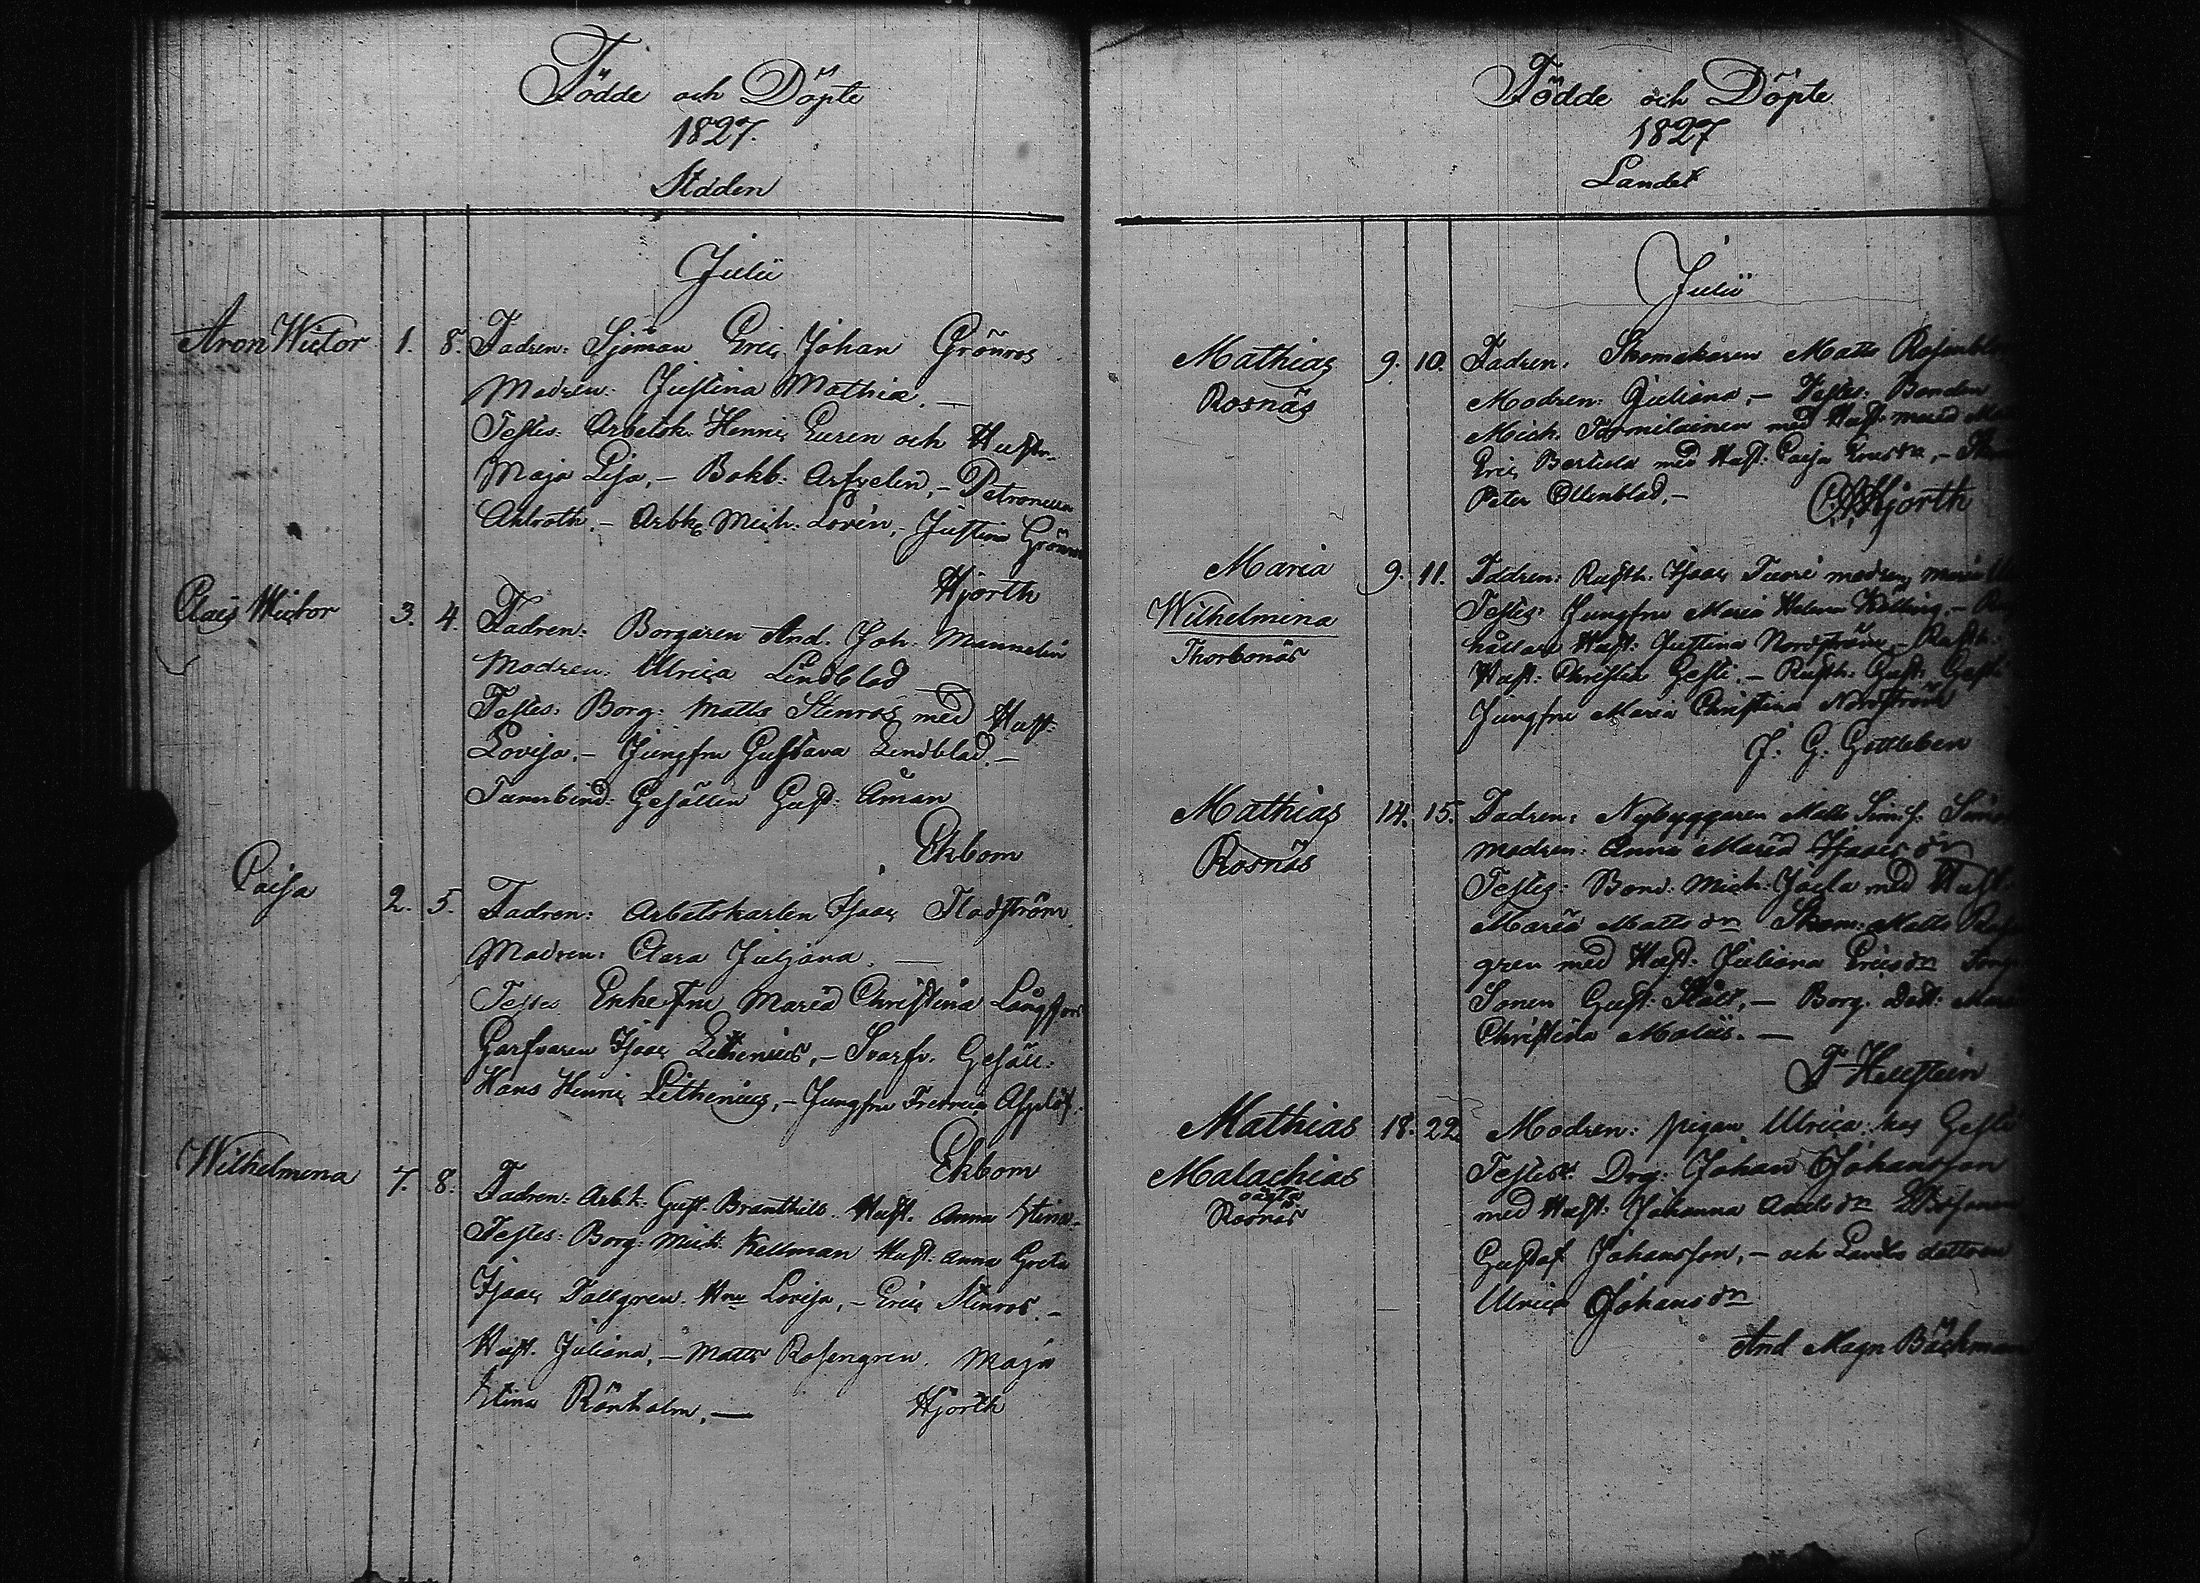 Födde och Döpte
1827.
Staden
Julii
Aron Wictor 1. 8. Fadren: Sjöman Eric Johan Grönros
Modren: Justina Mathiæ. —
Testes: Arbetsk. Henric Euren och Hustr.
Maja Lisa, — Bokb: Arfvelin, — Petronella
Ahlroth. — Arbk. Mich. Lovén, — Justina Grönros
Hjorth
Claes Wictor 3. 4. Fadren: Borgaren And. Joh. Mannelin
Modren: Ulrica Lindblad
Testes: Borg: Matts Stenros med Hust:
Lovisa. — Jungfru Gustava Lindblad. —
Tunnbind: Gesällen Gust: Åman
Ekbom
Caisa 2. 5. Fadren: Arbetskarlen Isaac Flodström
Modren: Clara Juljana. —
Testes Enkefru Maria Christina Långfors
Garfvaren Isaac Lithenius, — Svarfv. Gesäll:
Hans Henric Lithenius, — Jungfru Fredrica Asplöf.
Ekbom
Wilhelmina 7. 8. Fadren: Arbk: Gust. Branthill. Hust. Anna Stina
Testes: Borg: Mich: Kellman Hust: Anna Greta
Isaac Tallgren. Hru Lovisa, — Eric Stenros. —
Hust. Juliana, — Matts Rosengren. Maja
Stina Rönholm, — Hjorth
Födde och Döpte
1827
Landet
Julii
Mathias 9. 10. Fadren: Skomakaren Matts
Rosnäs Modren: Juliana, — Testes: Bonden
Mich. Tormilainen med Hust: Maria
Eric Bertula med Hust: Caisa Ericsdr, —
Peter Ollenblad, — Hjorth
Maria 9. 11. Fadren: Rusth: Isaac Tuori modren, Maria
Wilhelmina Testes: Jungfru Maria Helena Wälling, —
Thorbonäs hållare Hust: Justina Nordström, Rusth:
Hust: Christin Gesti. — Rusth: Gust: Gesti
Jungfru Maria Christina Nordström
J. G. Gottleben
Mathias 14. 15. Fadren: Nybyggaren Matts Sim: f.
Rosnäs Modren: Anna Maria Isaacs dr
Testes: Bond: Mich: Jacla med Hust:
Maria Matts dr Skom: Matts
gren med Hust: Juliana Ericsdr
Sonen Gust: Ståll, — Borg. Dott: Maria
Christina Malin. —
Hellstein
Mathias 18. 22. Modren: pigan Ulrica hos Gesti
Malachias Testes: Drg: Johan Johansson
oäkta med Hust: Johanna Axels dr
Rosnäs Gustaf Johansson, — och Landbo dottren
Ulrica Johans dr
And Magn Bäckman